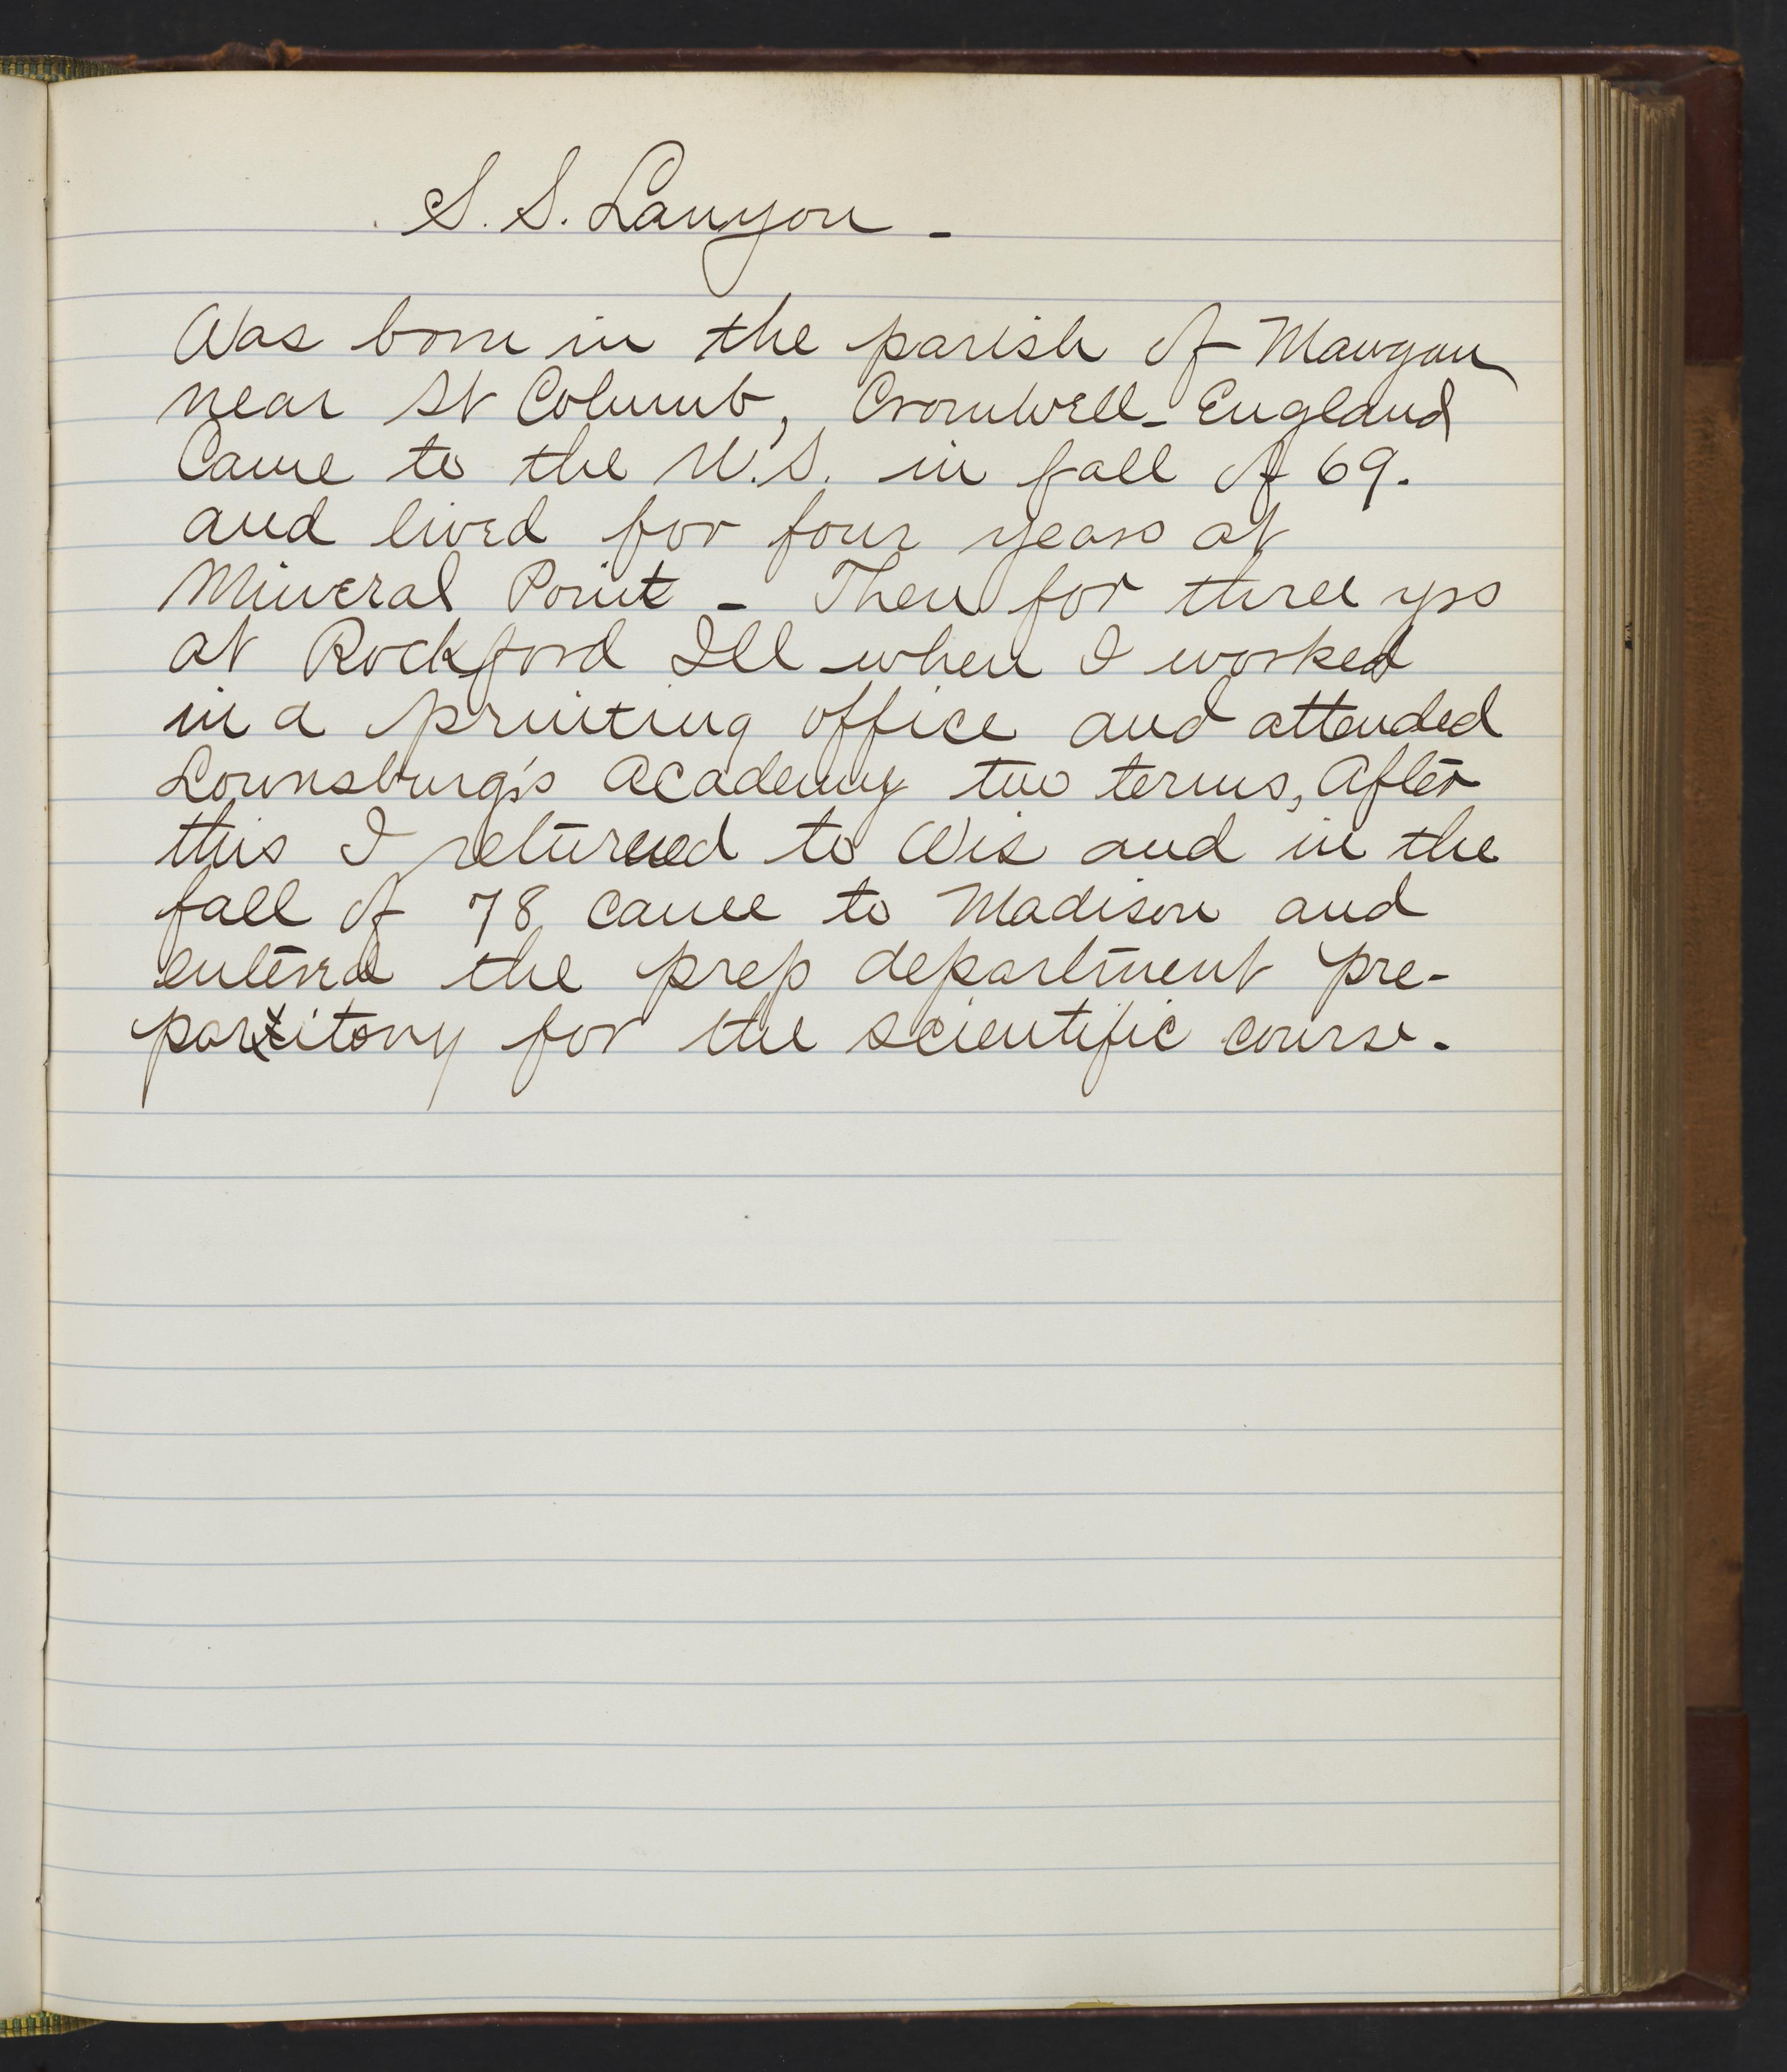 S. S. Lanyon -
Was born in the parish of Mawgan
near St Columb, Cromwell - England
Came to the U.S. in fall of 69.
and lived for four years at
Mineral Point - Then for three yrs
at Rockford Ill when I worked
in a printing office and attended
Lownsburg's Academy two terms, After
this I returned to Wis and in the
fall of 78 came to Madison and
entered the prep department pre-
paritory for the scientific course.